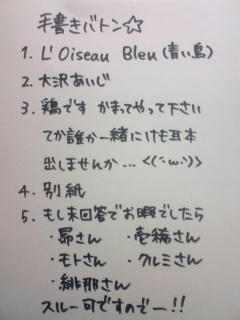 手書きバトン☆
1. L'Oiseau Bleu (青い鳥)
2. 大沢あいじ
3. 鶏です かまってやって下さい
てか誰か一緒にけも耳本
出しませんか…<(´・ω・`)>
4. 別紙
5. もし未回答でお暇でしたら
・昴さん ・壱稀さん
・モトさん ・クルミさん
・緋那さん
スルー可ですのでー!!